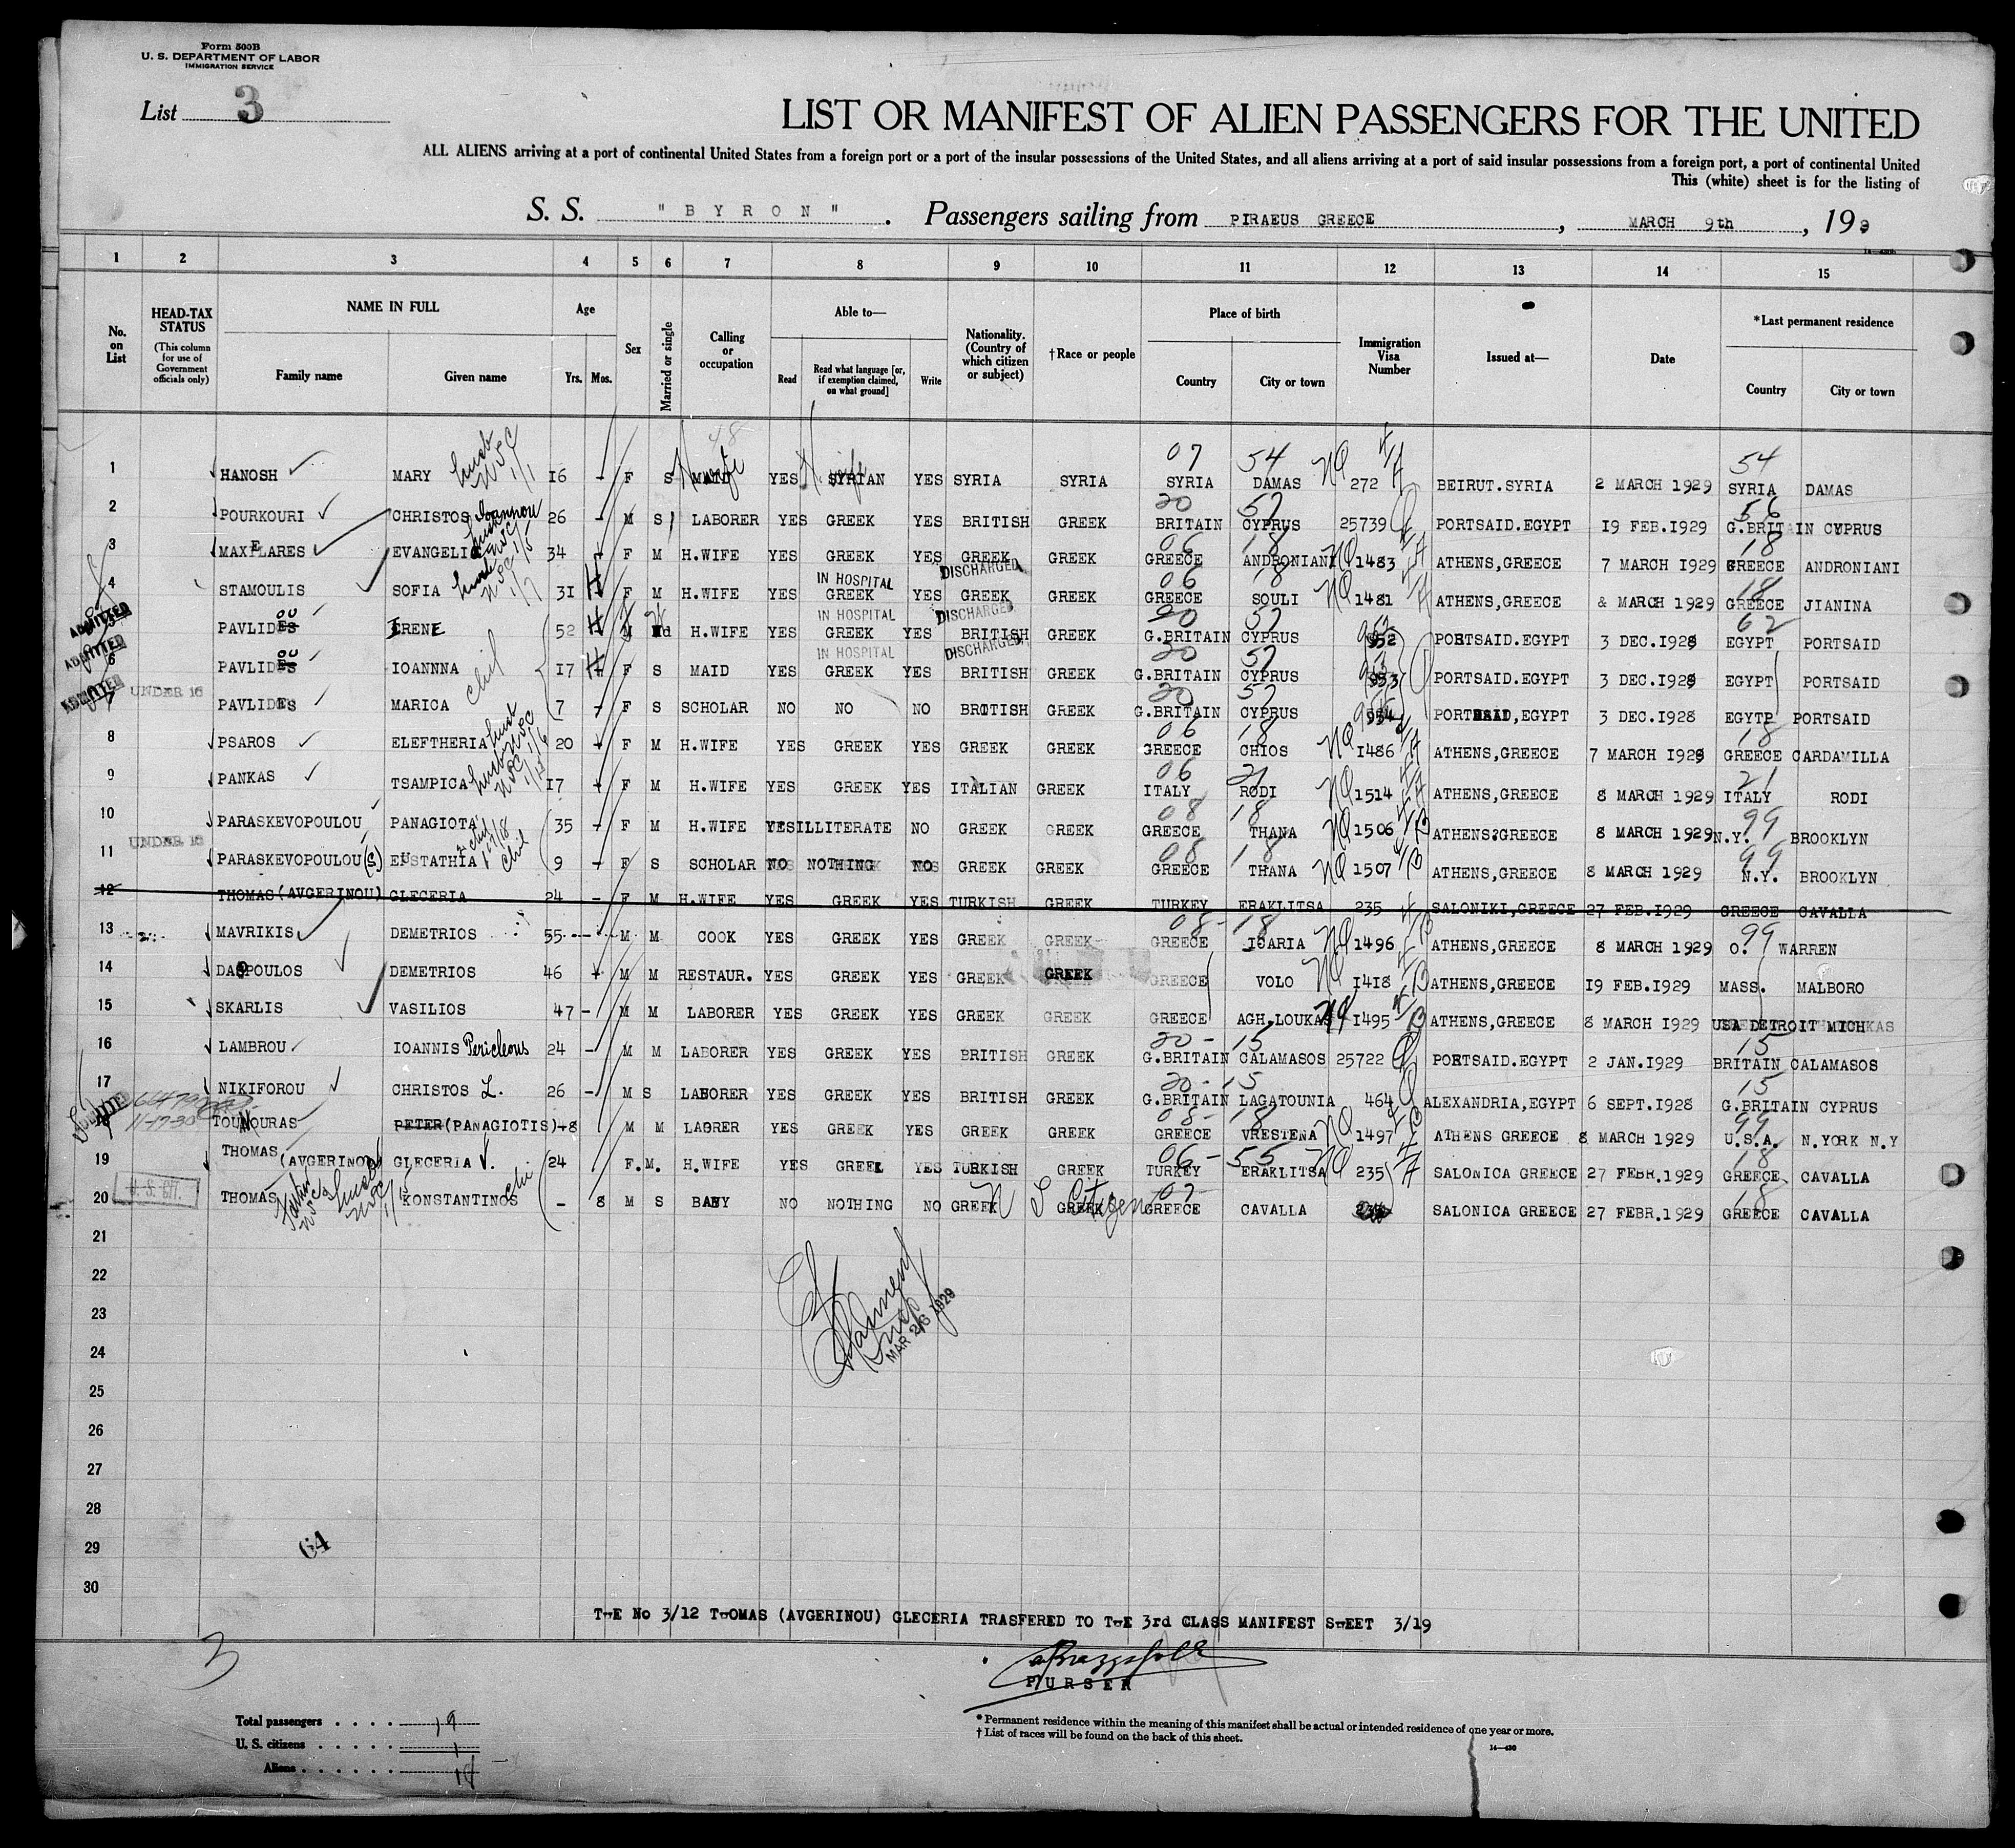 Form 500B
U. S. DEPARTMENT OF LABOR
IMMIGRATION SERVICE
List 3
LIST OR MANIFEST OF ALIEN PASSENGERS FOR THE UNITED
ALL ALIENS arriving at a port of continental United States from a foreign port or a port of the insular possessions of the United States, and all aliens arriving at a port of said insular possessions from a foreign port, a port of continental United
This (white) sheet is for the listing of
S. S. "BYRON". Passengers sailing from PIRAEUS GREECE, MARCH 9th, 199
1 2 3 4 5 6 7 8 9 10 11 12 13 14 15
No. on List
HEAD-TAX STATUS (This column for use of Government officials only)
NAME IN FULL Family name Given name
Age Yrs. Mos.
Sex
Married or single
Calling or occupation
Able to— Read Read what language [or, if exemption claimed, on what ground] Write
Nationality. (Country of which citizen or subject)
†Race or people
Place of birth Country City or town
Immigration Visa Number
Issued at—
Date
*Last permanent residence Country City or town
07 54 NQ 54
1 HANOSH MARY 16 - F S MAID YES SYRIAN YES SYRIA SYRIA SYRIA DAMAS 272 BEIRUT.SYRIA 2 MARCH 1929 SYRIA DAMAS
20 57 56
2 POURKOURI CHRISTOS Ioannou 26 - M S LABORER YES GREEK YES BRITISH GREEK BRITAIN CYPRUS 25739 PORTSAID.EGYPT 19 FEB.1929 G.BRITAIN CYPRUS
06 18 NQ 18
3 MAXELARES EVANGELIA 34 - F M H.WIFE YES GREEK YES GREEK GREEK GREECE ANDRONIANI 1483 ATHENS,GREECE 7 MARCH 1929 GREECE ANDRONIANI
IN HOSPITAL DISCHARGED 06 18 NQ 18
4 STAMOULIS SOFIA 31 F M H.WIFE YES GREEK YES GREEK GREEK GREECE SOULI 1481 ATHENS,GREECE & MARCH 1929 GREECE JIANINA
ADMITTED IN HOSPITAL DISCHARGED 20 57 62
PAVLIDES OU IRENE 52 M Md H.WIFE YES GREEK YES BRITISH GREEK G.BRITAIN CYPRUS 952 PORTSAID.EGYPT 3 DEC.1928 EGYPT PORTSAID
ADMITTED IN HOSPITAL DISCHARGED 20 57
6 PAVLIDES OU IOANNNA 17 F S MAID YES GREEK YES BRITISH GREEK G.BRITAIN CYPRUS 953 PORTSAID.EGYPT 3 DEC.1928 EGYPT PORTSAID
ADMITTED UNDER 16 20 57
PAVLIDES MARICA 7 - F S SCHOLAR NO NO NO BRITISH GREEK G.BRITAIN CYPRUS 954 PORTSAID,EGYPT 3 DEC.1928 EGYTP PORTSAID
06 18 NQ 18
8 PSAROS ELEFTHERIA 20 F M H.WIFE YES GREEK YES GREEK GREEK GREECE CHIOS 1486 ATHENS,GREECE 7 MARCH 1929 GREECE CARDAMILLA
06 21 NQ 21
9 PANKAS TSAMPICA 17 F M H.WIFE YES GREEK YES ITALIAN GREEK ITALY RODI 1514 ATHENS,GREECE 8 MARCH 1929 ITALY RODI
08 18 NQ 99
10 PARASKEVOPOULOU PANAGIOTA 35 - F M H.WIFE YES ILLITERATE NO GREEK GREEK GREECE THANA 1506 ATHENS?GREECE 8 MARCH 1929 N.Y. BROOKLYN
UNDER 16 08 18 NQ 99
11 PARASKEVOPOULOU (S) EUSTATHIA 9 - F S SCHOLAR NO NOTHING NO GREEK GREEK GREECE THANA 1507 ATHENS,GREECE 8 MARCH 1929 N.Y. BROOKLYN
12 THOMAS (AVGERINOU) GLECERIA 24 - F M H.WIFE YES GREEK YES TURKISH GREEK TURKEY ERAKLITSA 235 SALONIKI,GREECE 27 FEB.1929 GREECE CAVALLA
08 - 18 NQ 99
13 MAVRIKIS DEMETRIOS 55 - M M COOK YES GREEK YES GREEK GREEK GREECE ICARIA 1496 ATHENS,GREECE 8 MARCH 1929 O. WARREN
14 DAOPOULOS DEMETRIOS 46 M M RESTAUR. YES GREEK YES GREEK GREEK GREECE VOLO NQ 1418 ATHENS,GREECE 19 FEB.1929 MASS. MALBORO
15 SKARLIS VASILIOS 47 - M M LABORER YES GREEK YES GREEK GREEK GREECE AGH.LOUKAS NQ 1495 ATHENS,GREECE 8 MARCH 1929 USA DETROIT MICH
20 - 15 15
16 LAMBROU IOANNIS Pericleous 24 - M M LABORER YES GREEK YES BRITISH GREEK G.BRITAIN CALAMASOS 25722 PORTSAID.EGYPT 2 JAN.1929 BRITAIN CALAMASOS
20 - 15 15
17 NIKIFOROU CHRISTOS L. 26 - M S LABORER YES GREEK YES BRITISH GREEK G.BRITAIN LAGATOUNIA 464 ALEXANDRIA,EGYPT 6 SEPT.1928 G.BRITAIN CYPRUS
11-17-30 08 - 18 NQ 99
TOUMOURAS PETER (PANAGIOTIS) 48 M M LABRER YES GREEK YES GREEK GREEK GREECE VRESTENA 1497 ATHENS GREECE 8 MARCH 1929 U.S.A. N.YORK N.Y
06 - 55 NQ 18
19 THOMAS (AVGERINOU) GLECERIA 24 F.M. H.WIFE YES GREEK YES TURKISH GREEK TURKEY ERAKLITSA 235 SALONICA GREECE 27 FEBR.1929 GREECE CAVALLA
U.S. CIT. U S Citizen 07 - 18
20 THOMAS KONSTANTINOS - 8 M S BABY NO NOTHING NO GREEK GREEK GREECE CAVALLA SALONICA GREECE 27 FEBR.1929 GREECE CAVALLA
21
22
23
MAR 26 1929
24
25
26
27
28
64
29
30
THE No 3/12 THOMAS (AVGERINOU) GLECERIA TRASFERED TO THE 3rd CLASS MANIFEST SHEET 3/19
3
PURSER
Total passengers . . . . 19
U. S. citizens . . . . . 1
Aliens . . . . . . 18
* Permanent residence within the meaning of this manifest shall be actual or intended residence of one year or more.
† List of races will be found on the back of this sheet.
14—430